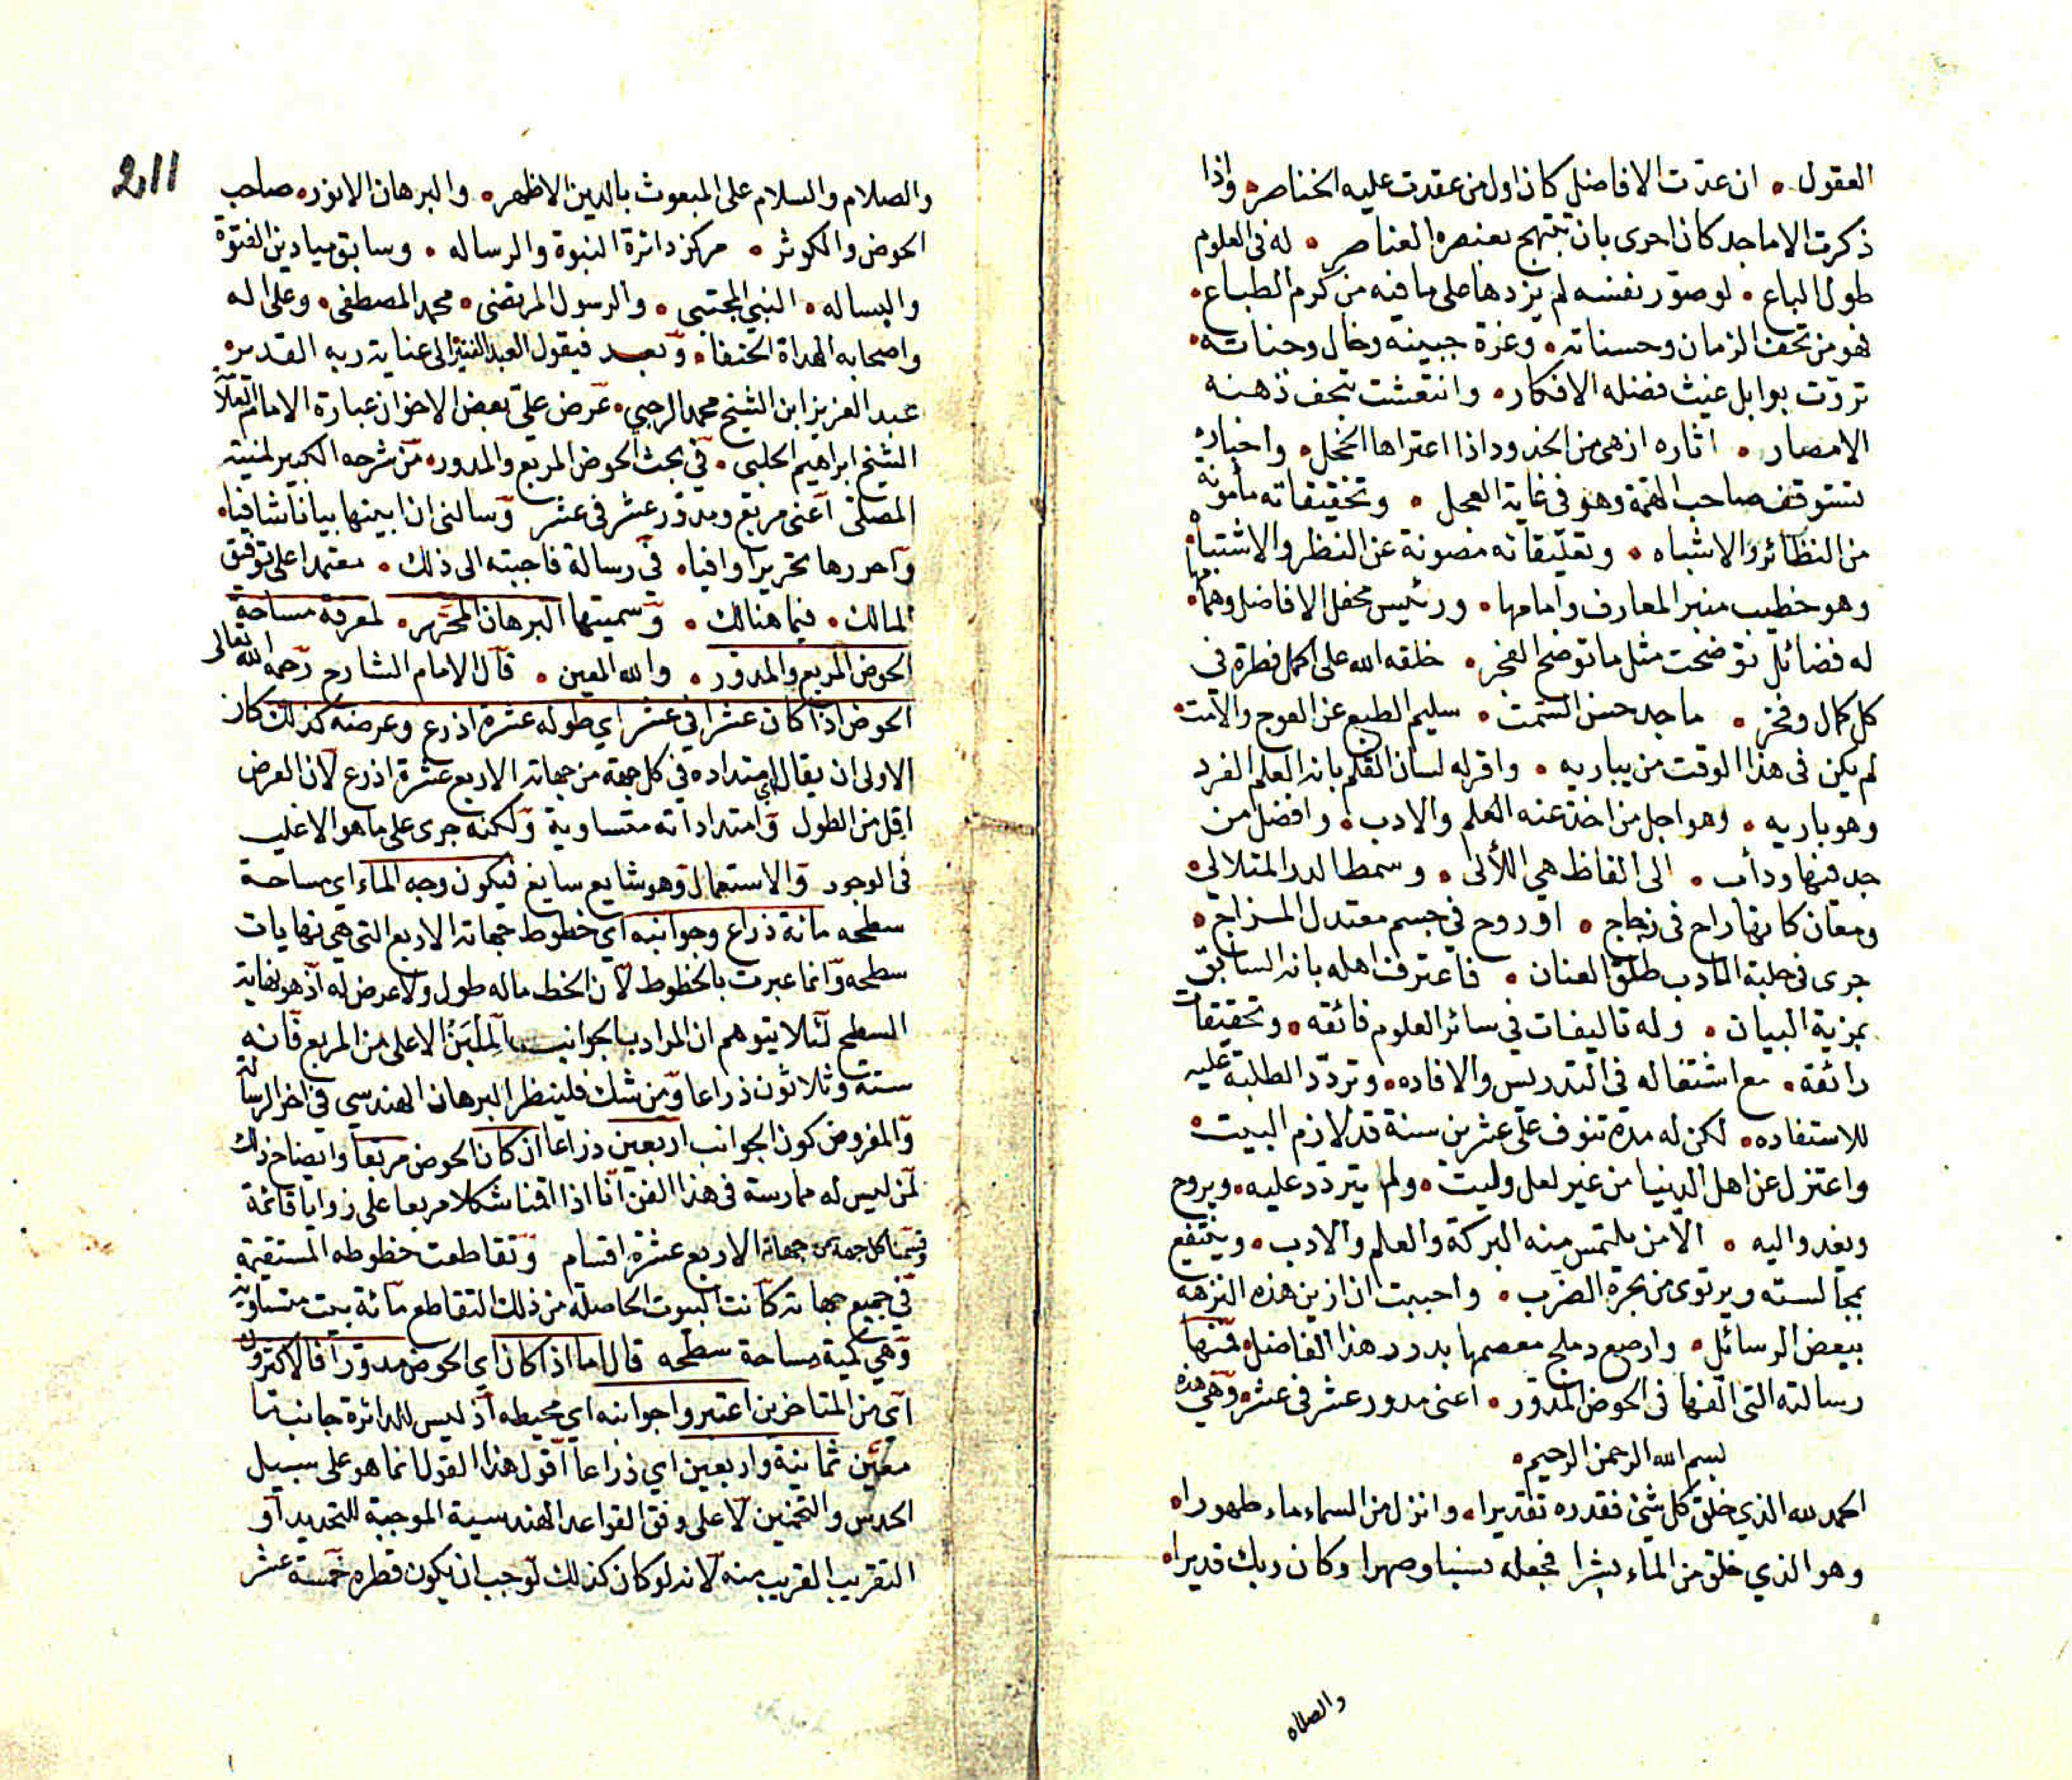 العقول • ان عدّت الافاضل كان اول من عقدت عليه الخناصر • واذا
ذكرت الاماجد كان احرى بان تبتهج بعنصره العناصر • له فى العلوم
طول الباع • لو صوّر نفسه لم يزدها على ما فيه من كرم الطباع •
فهو من تحف الزمان وحسناته • وغرّة جبينه وخال وجناته •
تروّت بوابل غيث فضله الافكار • وانتعشت بتحف ذهنه
الامصار • اثاره ازهى من الخدود اذا اعتراها الخجل • واخباره
تستوقف صاحب الهمّة وهو فى غاية العجل • وتحقيقاته مأمونة
من النظائر والاشباه • وتعليقاته مصونة عن النظر والاشتباه •
وهو خطيب منبر المعارف وامامها • ورئيس محفل الافاضل وهمامها •
له فضائل توضحت مثل ما توضح الفجر • خلقه الله على اكمل فطرة فى
كل كمال وفخر • ماجد حسن السّمت • سليم الطبع عن العوج والامت •
لم يكن فى هذا الوقت من يباريه • واقر له لسان القلم بانه العلم الفرد
وهو باريه • وهو اجل من اخذ عنه العلم والادب • وافضل من
جد فيها ودأب • الى الفاظ هي اللألى • وسمط الدر المتلالي •
ومعان كانها راح فى زجاج • او روح في جسم معتدل المزاج •
جرى فى حلبة الادب طلق العنان • فاعترفت اهله بانه السابق
بمزية البيان • وله تاليفات في سائر العلوم فائقه • وتحقيقات
رائقة • مع اشتغاله فى التدريس والافاده • وتردّد الطلبة عليه
للاستفاده • لكن له مدة تنوف على عشرين سنة قد لازم البيت •
واعتزل عن اهل الدنيا من غير لعل وليت • ولم يتردّد عليه • ويروح
ويغدو اليه • الا من يلتمس منه البركة والعلم والادب • وينتفع
بمجالسته ويرتوى من بحره الضّرب • واحببت ان ازين هذه النزهه
ببعض الرسائل • وارصع دملج معصمها بدرر هذا الفاضل • فمنها
رسالته التى الّفها فى الحوض المدوّر • اعنى مدور عشر فى عشر • وهي هذه
بسم الله الرحمن الرحيم •
الحمد لله الذي خلق كل شئ فقدره تقديرا • وانزل من السماء ماء طهورا •
وهو الذي خلق من الماء بشرا فجعله نسبا وصهرا وكان ربك قديرا •
والصلاه
211
والصلاه والسلام على المبعوث بالدين الاظهر • والبرهان الانور • صاحب
الحوض والكوثر • مركز دائرة النبوة والرساله • وسابق ميادين الفتوّة
والبساله • النبي المجتبى • والرسول المرتضى • محمد المصطفى • وعلى اله
واصحابه الهداة الحنفا • وبعد فيقول العبد الفقير الى عناية ربه القدير •
عبد العزيز ابن الشيخ محمد الرحبي • عرض عليّ بعض الاخوان عبارة الامام
الشيخ ابراهيم الحلبى • في بحث الحوض المربع والمدور • من شرحه الكبير لمنية
المصلّى اعنى مربع ومدوّر عشر فى عشر وسالنى ان ابينها بيانا شافيا •
واحررها تحريرا وافيا • في رسالة فاجبته الى ذلك • معتمدا على توفيق
المالك • فيما هنالك • وسميتها البرهان المحرّر • لمعرفة مساحة
الحوض المربع والمدوّر • والله المعين • قال الامام الشارح رحمه الله تعالى
الحوض اذا كان عشرا في عشر اي طوله عشرة اذرع وعرضه كذلك كان
الاولى ان يقال اي امتداده في كل جهة من جهاته الاربع عشرة اذرع لان العرض
اقل من الطول وامتداداته متساوية ولكنه جرى على ما هو الاغلب
فى الوجود والاستعمال وهو شايع سايغ فيكون وجه الماء اي مساحة
سطحه مائة ذراع وجوانبه اي خطوط جهاته الاربع التي هي نهايات
سطحه وانما عبرت بالخطوط لان الخط ما له طول ولا عرض له اذ هو نهاية
السطح لئلا يتوهم ان المراد بالجوانب اللبن الاعلى من المربع فانه
ستة وثلاثون ذراعا ومن شك فلينظر البرهان الهندسي في اخر الرسالة
والمفروض كون الجوانب اربعين ذراعا ان كان الحوض مربعا وايضاح ذلك
لمن ليس له ممارسة فى هذا الفن انا اذا اقمنا شكلا مربعا على زوايا قائمة
وقسمنا كل جهة من جهاته الاربع عشرة اقسام وتقاطعت خطوطه المستقيمة
في جميع جهاته كانت البيوت الحاصلة من ذلك التقاطع مائة بيت متساوية
وهي كمية مساحة سطحه قال اما اذا كان اي الحوض مدوّرا فالاكثرون
اي من المتاخرين اعتبروا جوانبه اي محيطه اذ ليس للدائرة جانب ما
معيّن ثمانية واربعين اي ذراعا اقول هذا القول انما هو على سبيل
الحدس والتخمين لا على وفق القواعد الهندسية الموجبة للتحديد او
التقريب القريب منه لانه لو كان كذلك لوجب ان يكون قطره خمسة عشر